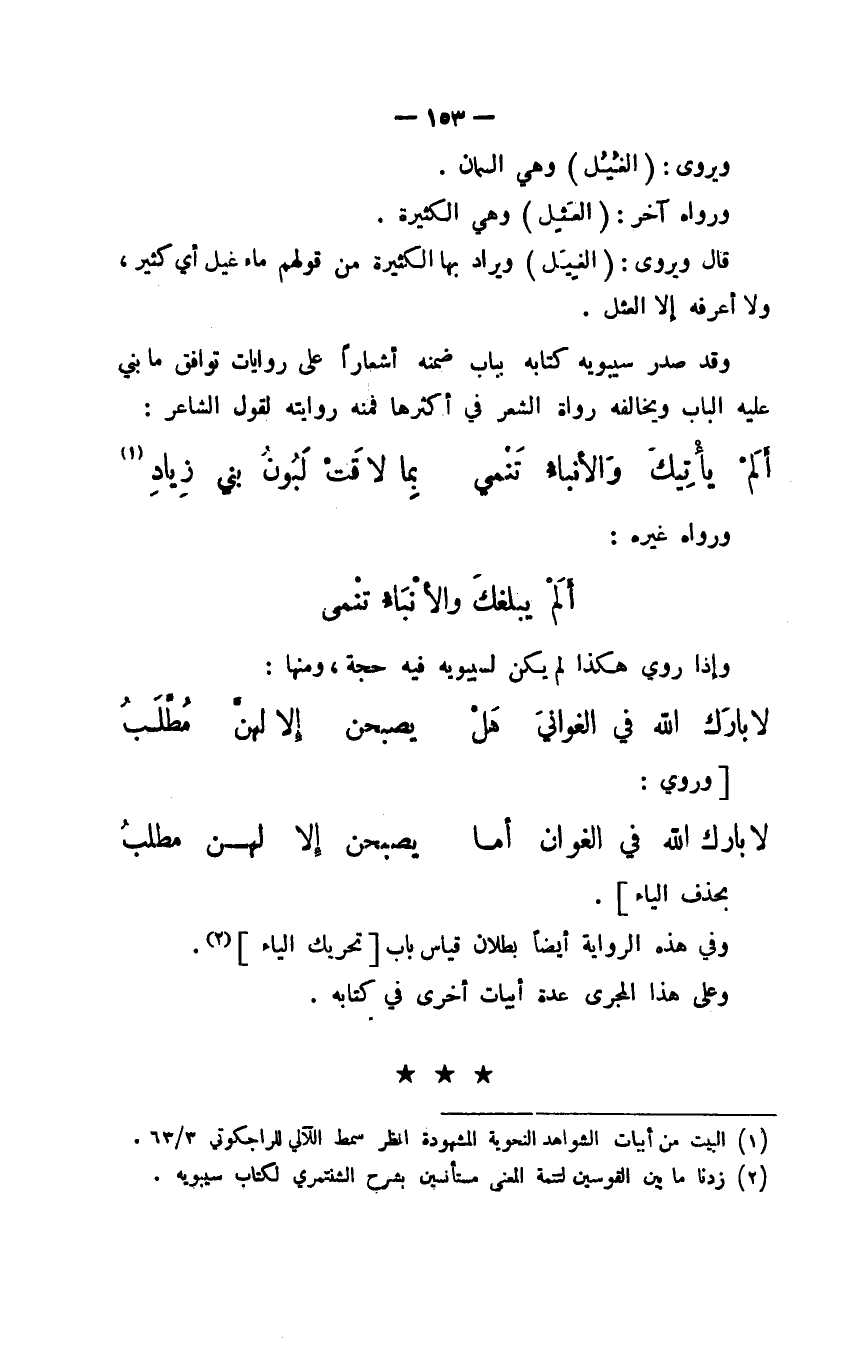 — ١٥٣ —
ويروى : ( الغُيُل ) وهي السمان .
ورواه آخر : ( العَثِل ) وهي الكثيرة .
قال ويروى : ( الغِيَل ) ويراد بها الكثيرة من قولهم ماء غيل أي كثير ،
ولا أعرفه إلا العثل .
وقد صدر سيبويه كتابه بباب ضمنه أشعاراً على روايات توافق ما بني
عليه الباب ويخالفه رواة الشعر في أكثرها فمنه روايته لقول الشاعر :
أَلَمْ يأْتِيكَ وَالأنباءُ تَنْمي بِما لاقَتْ لَبُونُ بني زِيادِ (١)
ورواه غيره :
أَلَمْ يبلغكَ والأنْبَاءُ تنْمى
وإذا روي هكذا لم يكن لسيبويه فيه حجة ، ومنها :
لا بارَك الله في الغوانيَ هَلْ يصبحن إلا لهنَّ مُطَّلَبُ
[ وروي :
لا بارك الله في الغوان أما يصبحن إلا لهن مطلبُ
بحذف الياء ] .
وفي هذه الرواية أيضاً بطلان قياس باب [ تحريك الياء ] (٢) .
وعلى هذا المجرى عدة أبيات أخرى في كتابه .
★ ★ ★
(١) البيت من أبيات الشواهد النحوية المشهودة انظر سمط اللآلي للراجكوتي ٦٣/٣ .
(٢) زدنا ما بين القوسين لتتمة المعنى مستأنسين بشرح الشنتمري لكتاب سيبويه .